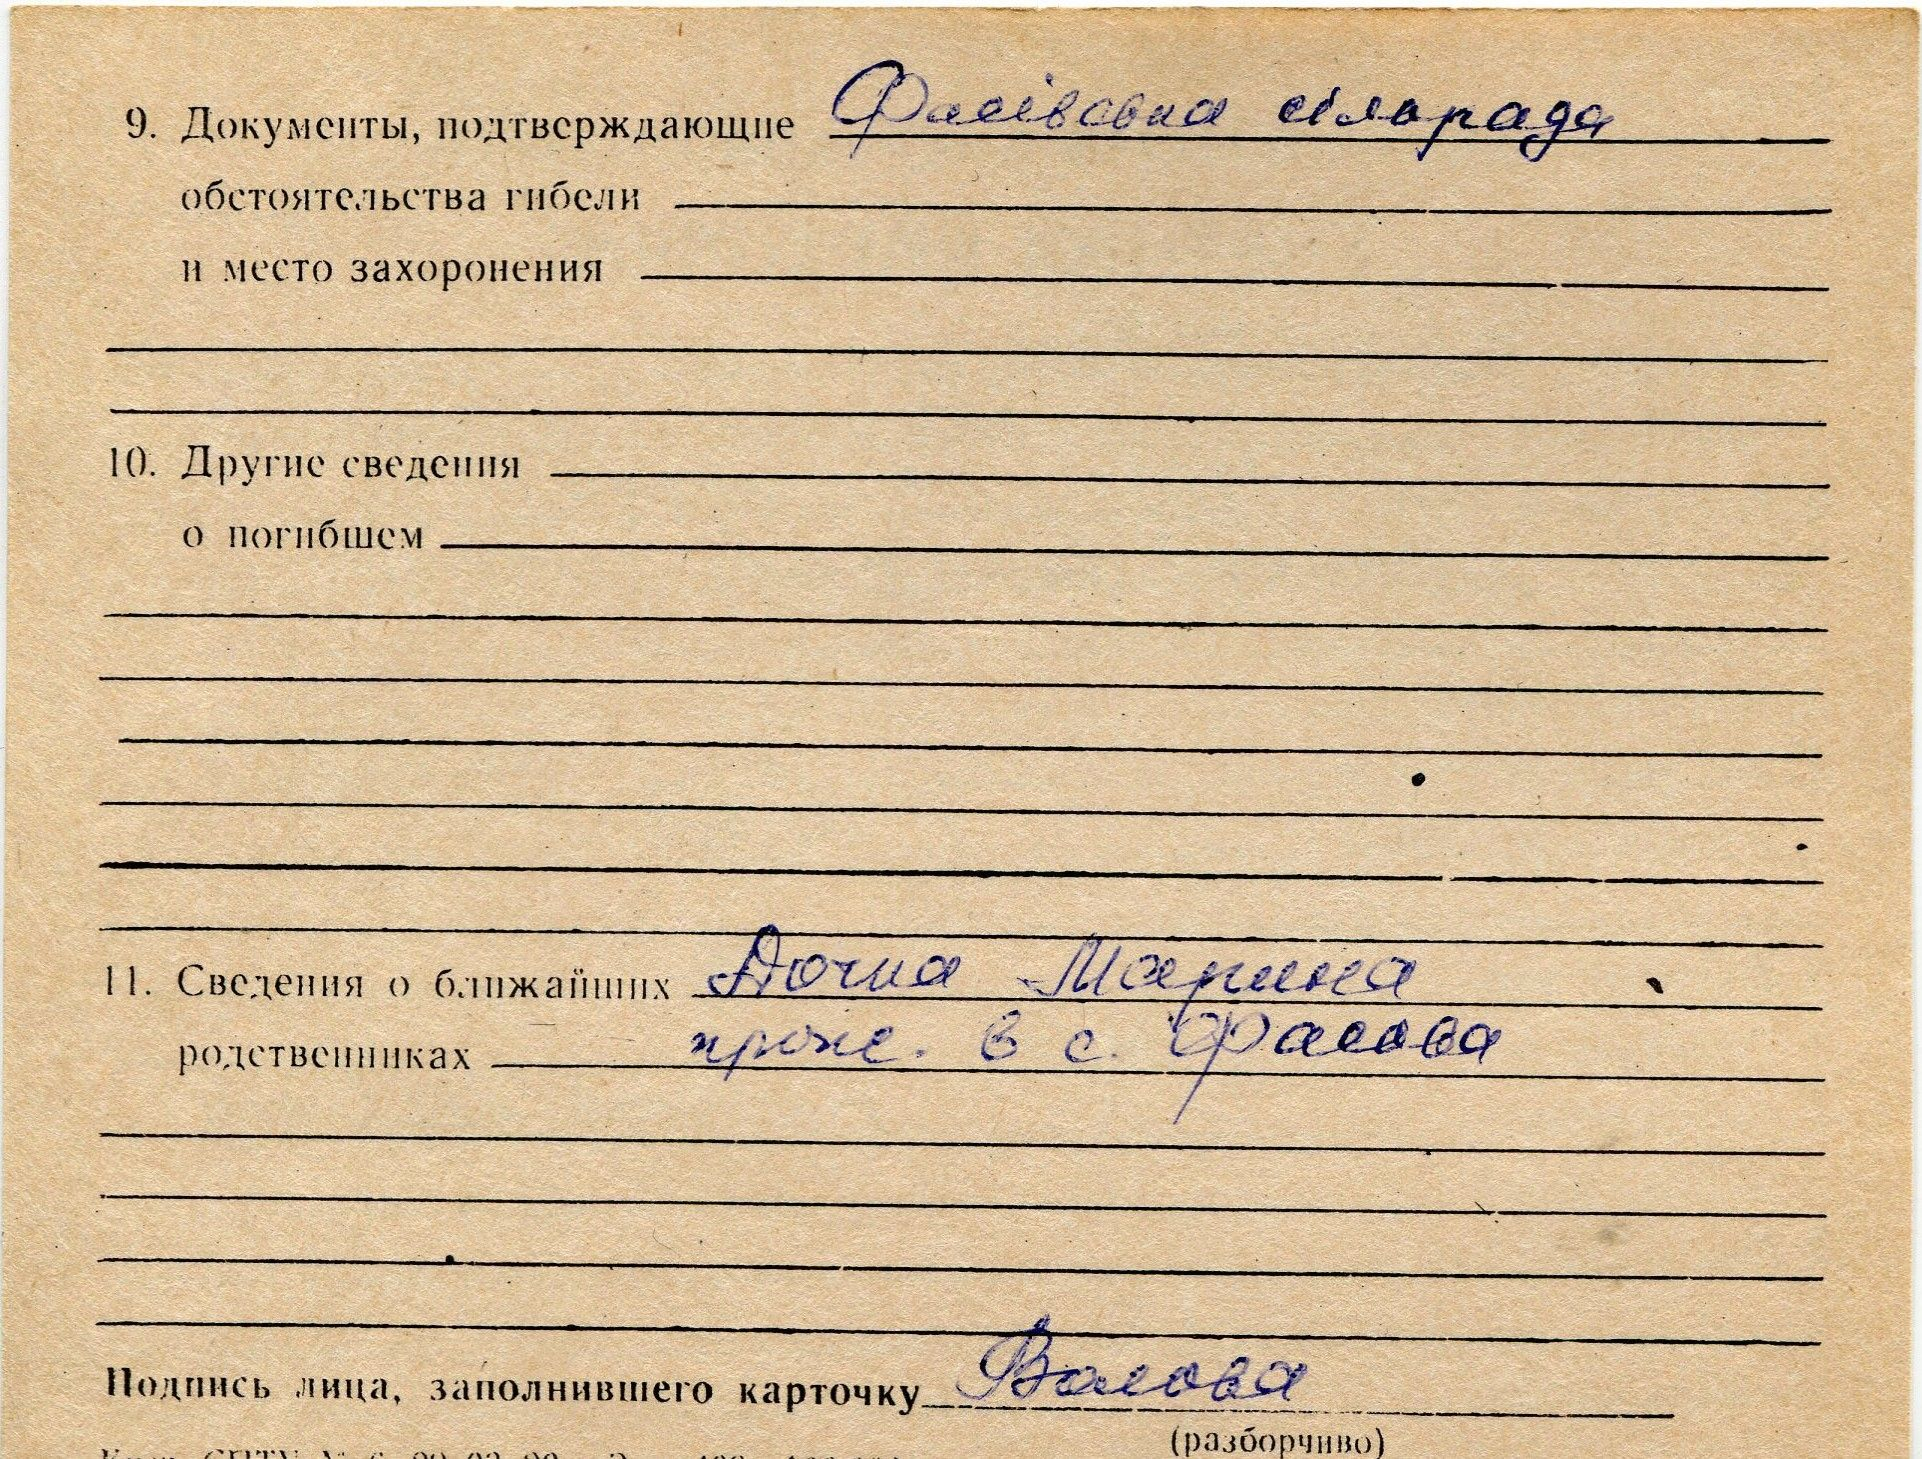 9. Документы, подтверждающие Фасівська сільрада
обстоятельства гибели
и место захоронения
10. Другие сведения
о погибшем
11. Сведения о ближайших Дочка Марина
родственниках прож. в с. Фасова
Подпись лица, заполнившего карточку Васова
(разборчиво)